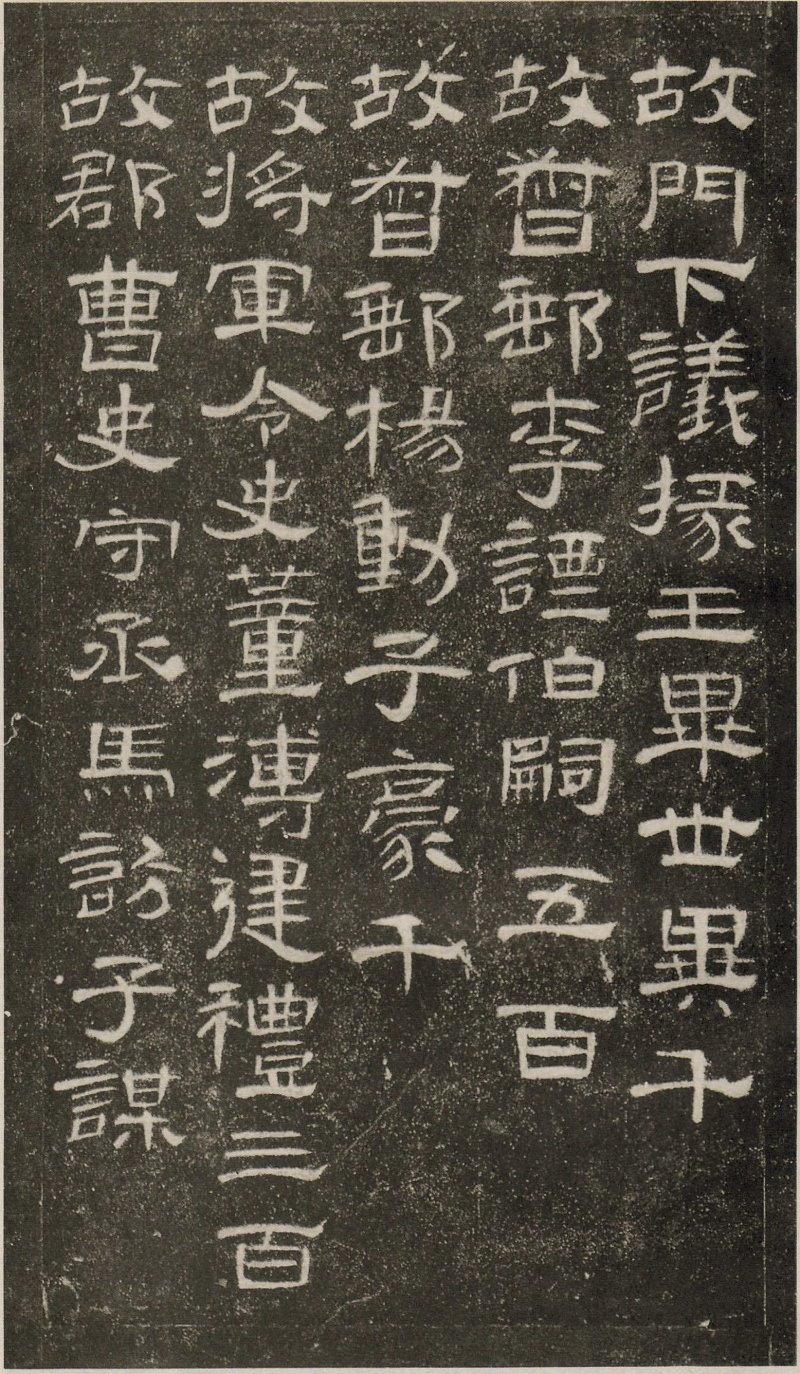 故門下議掾王畢世異千
故督郵李諲伯嗣五百
故督郵楊動子豪千
故將軍令史董溥建禮三百
故郡曹史守丞馬訪子謀